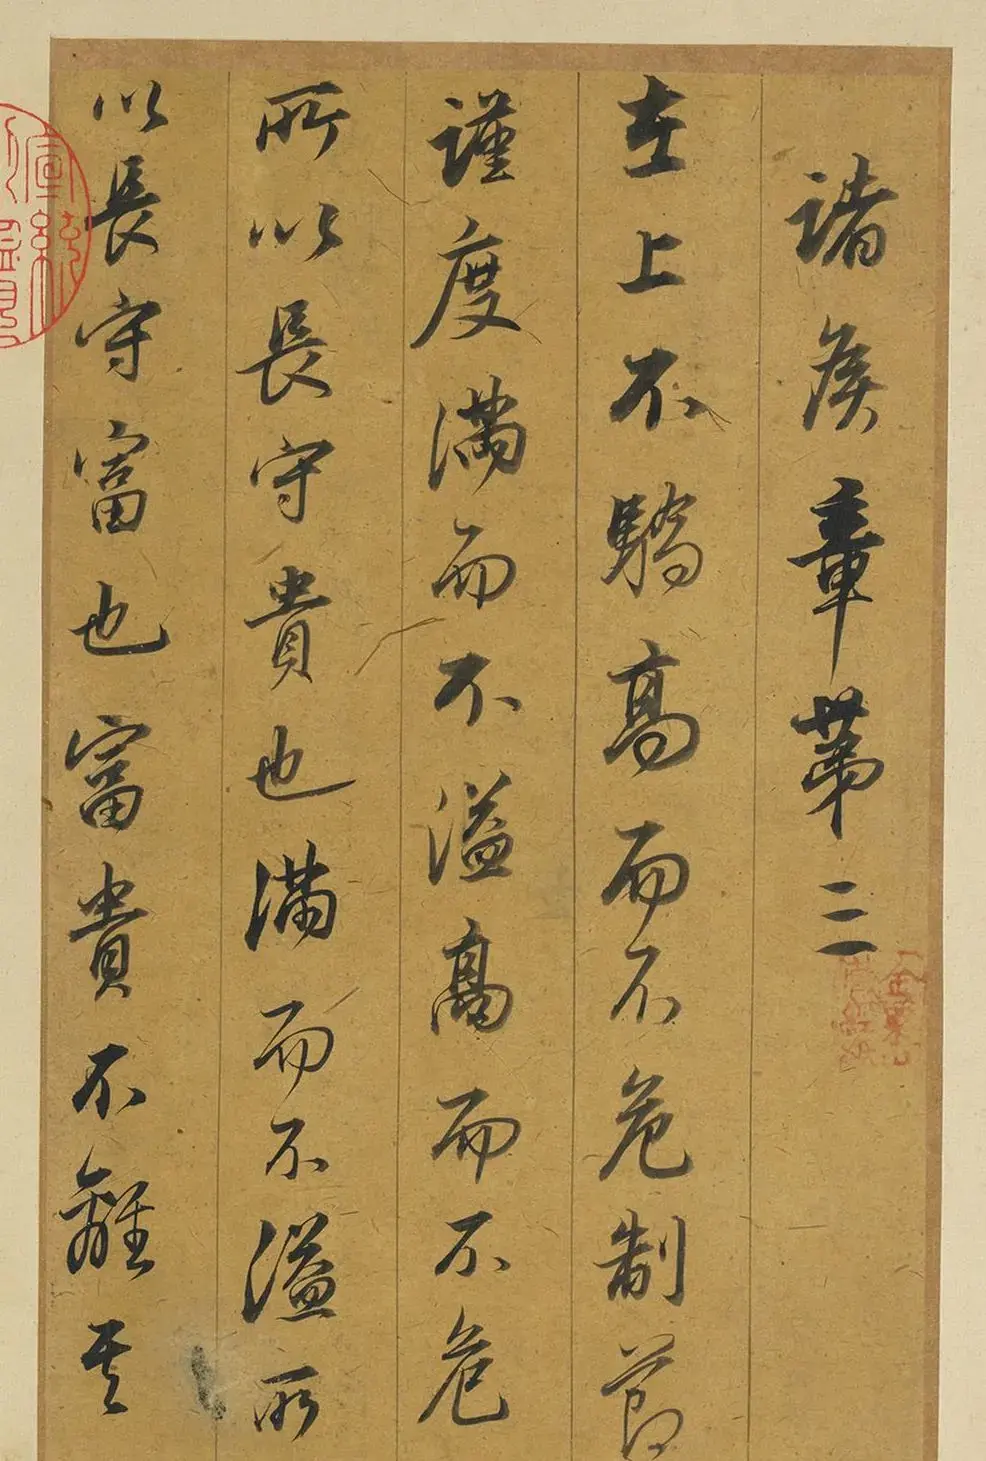 諸侯章第三
在上不驕高而不危制節
謹度滿而不溢高而不危
所以長守貴也滿而不溢所
以長守富也富貴不離其